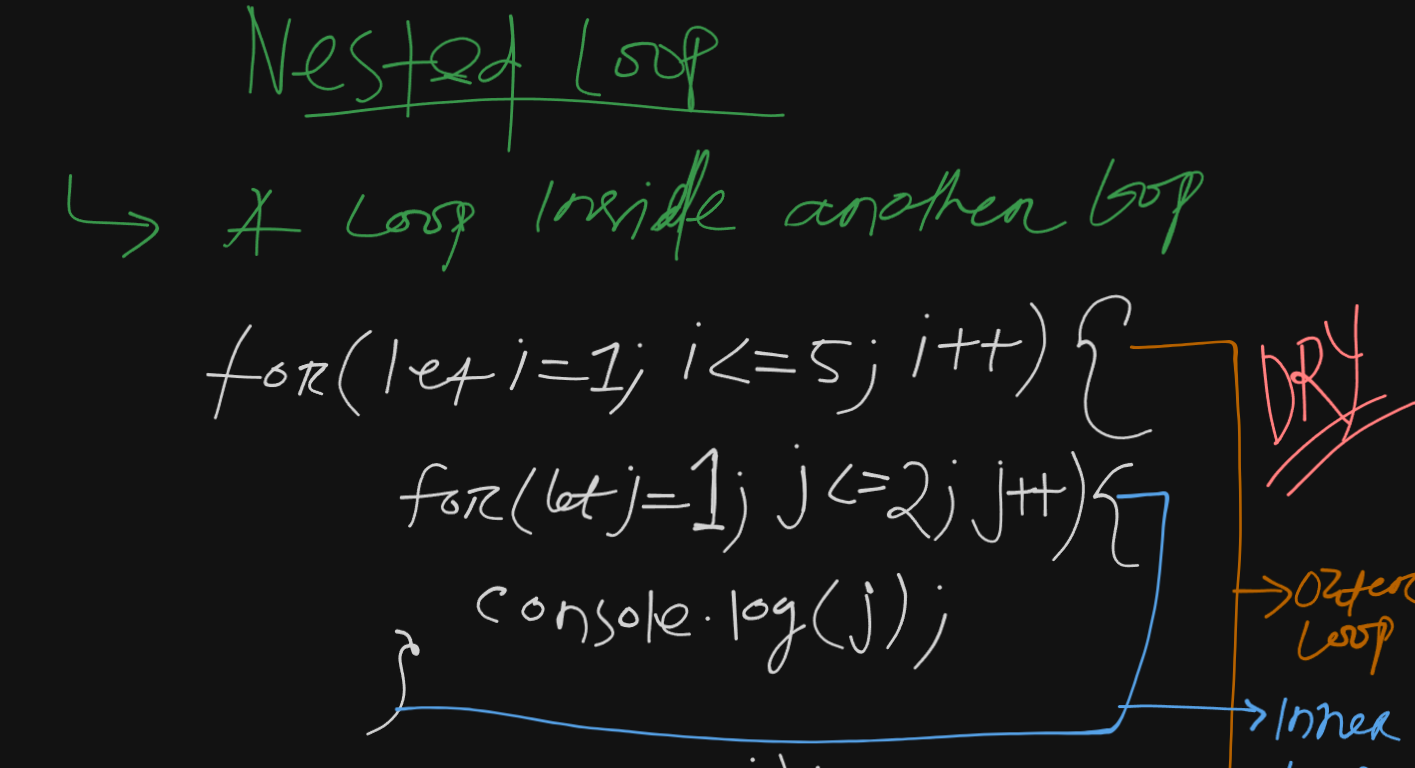 Nested Loop
A Loop Inside another loop
for(let i=1; i<=5; i++){
DRY
for(let j=1; j<=2; j++){
console.log(j);
Outer
Loop
}
Inner